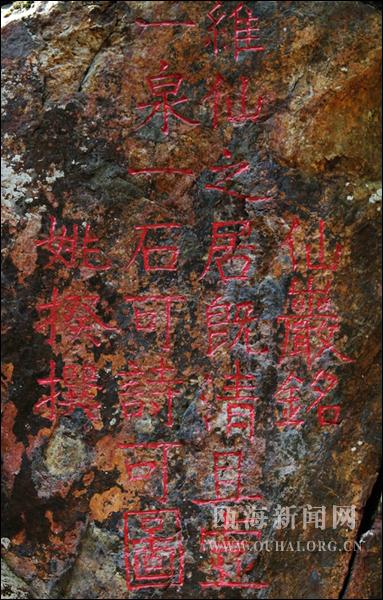 仙巖銘
維仙之居既清且虛
一泉一石可詩可圖
姚揆撰
瓯海新闻网
WWW.OUHAI.ORG.CN